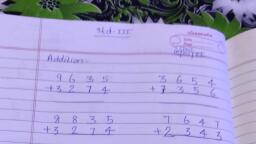 Std-III
Addition:-
9 6 3 5
+3 2 7 4
3 6 5 4
+7 3 5 6
8 8 3 5
+3 2 7 4
7 6 4 7
+2 3 4 3